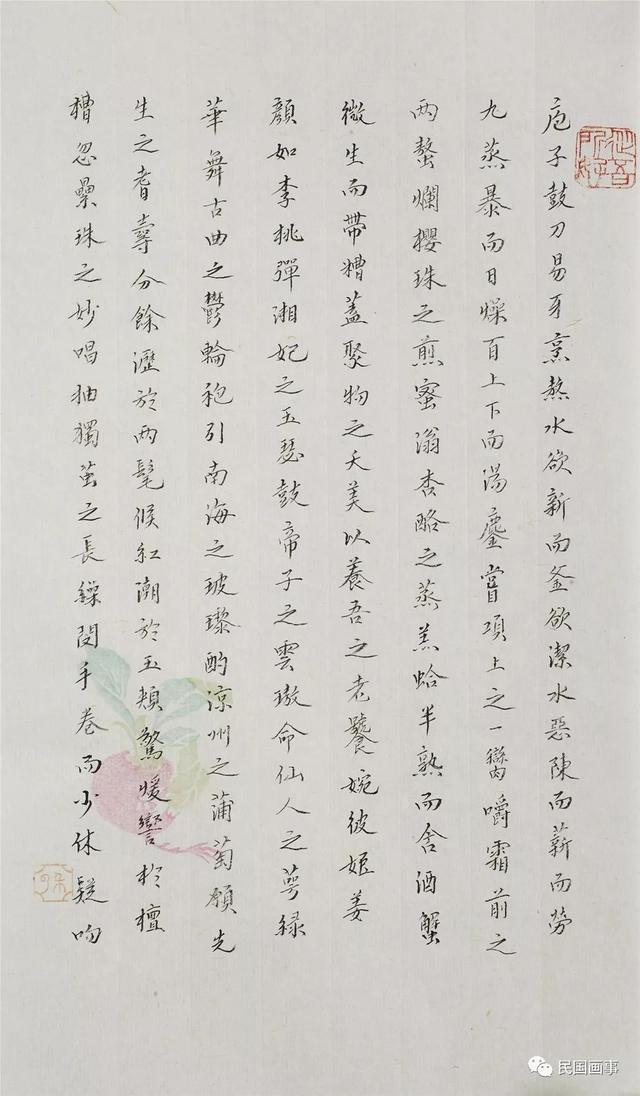 庖子鼓刀易牙烹熬水欲新而釜欲潔水惡陳而薪而勞
九蒸暴而日燥百上下而湯鏖嘗項上之一臠嚼霜前之
兩螯爛櫻珠之煎蜜滃杏酪之蒸羔蛤半熟而含酒蟹
微生而帶糟蓋聚物之夭美以養吾之老饕婉彼姬姜
顏如李桃彈湘妃之玉瑟鼓帝子之雲璈命仙人之萼綠
華舞古曲之鬱輪袍引南海之玻瓈酌涼州之蒲萄願先
生之耆壽分餘瀝於兩髦候紅潮於玉頰驚煖響於檀
槽忽纍珠之妙唱抽獨繭之長繰閔手卷而少休疑吻
民国画事